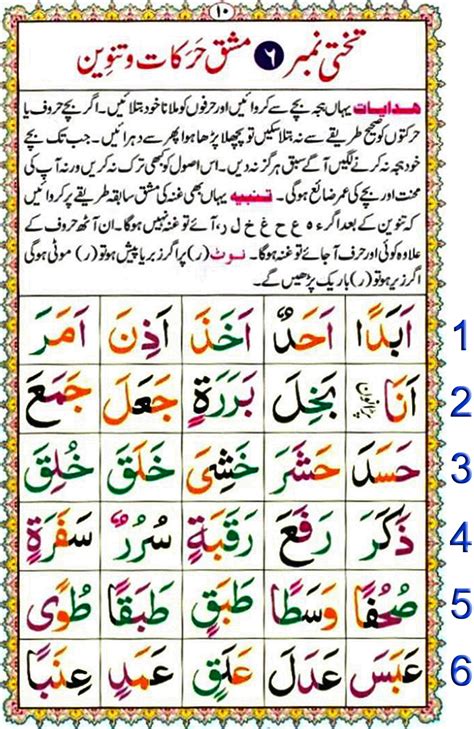 ۱۰
تختی نمبر ۶ مشق حرکات و تنوین
ھدایات یہاں ہجے بچے سے کروائیں اور حرفوں کو ملانا خود بتلائیں۔ اگر بچے حروف یا
حرکتوں کو صحیح طریقے سے نہ بتلا سکیں تو پچھلا پڑھا ہوا پھر سے دہرائیں۔ جب تک بچے
خود ہجے نہ کرنے لگیں آگے سبق ہرگز نہ دیں۔ اس اصول کو بھی ترک نہ کریں ورنہ آپ کی
محنت اور بچے کی عمر ضائع ہوگی۔ تنبیہ یہاں بھی غنہ کی مشق سابقہ طریقے پر کروائیں
کہ تنوین کے بعد اگر ء ہ ع ح غ خ ل ر، آئے تو غنہ نہیں ہوگا۔ ان آٹھ حروف کے
علاوہ کوئی اور حرف آجائے تو غنہ ہوگا۔ نوٹ (ر) پر اگر زبر یا پیش ہو تو (ر) موٹی ہوگی
اگر زیر ہو تو (ر) باریک پڑھیں گے۔
اَبَدًا اَحَدٌ اَخَذَ اَذِنَ اَمَرَ 1
اَنَا بَخِلَ بَرَرَةٍ جَعَلَ جَمَعَ 2
حَسَدَ حَشَرَ خَشِيَ خَلَقَ خُلِقَ 3
ذَكَرَ رَفَعَ رَقَبَةٍ سُرُرٌ سَفَرَةٍ 4
صُحُفًا وَسَطًا طَبَقٍ طَبَقًا طُوًى 5
عَبَسَ عَدَلَ عَلَقٍ عَمَدٍ عِنَبًا 6